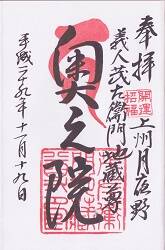 奉拝
開運
招福
上州月夜野
義人茂左衛門地蔵尊
奥之院
平成二十九年十一月十九日